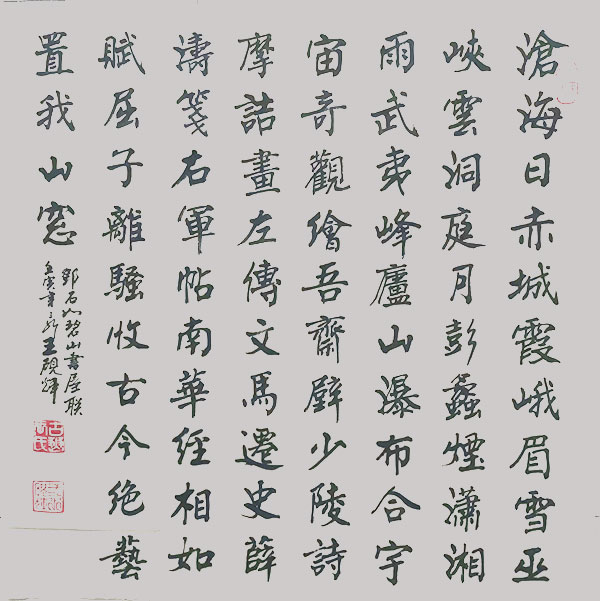 滄海日赤城霞峨眉雪巫
峽雲洞庭月彭蠡煙瀟湘
雨武夷峰廬山瀑布合宇
宙奇觀繪吾齋壁少陵詩
摩詰畫左傳文馬遷史薛
濤箋右軍帖南華經相如
賦屈子離騷收古今絶藝
置我山窓
鄧石如碧山書屋联
壬寅書